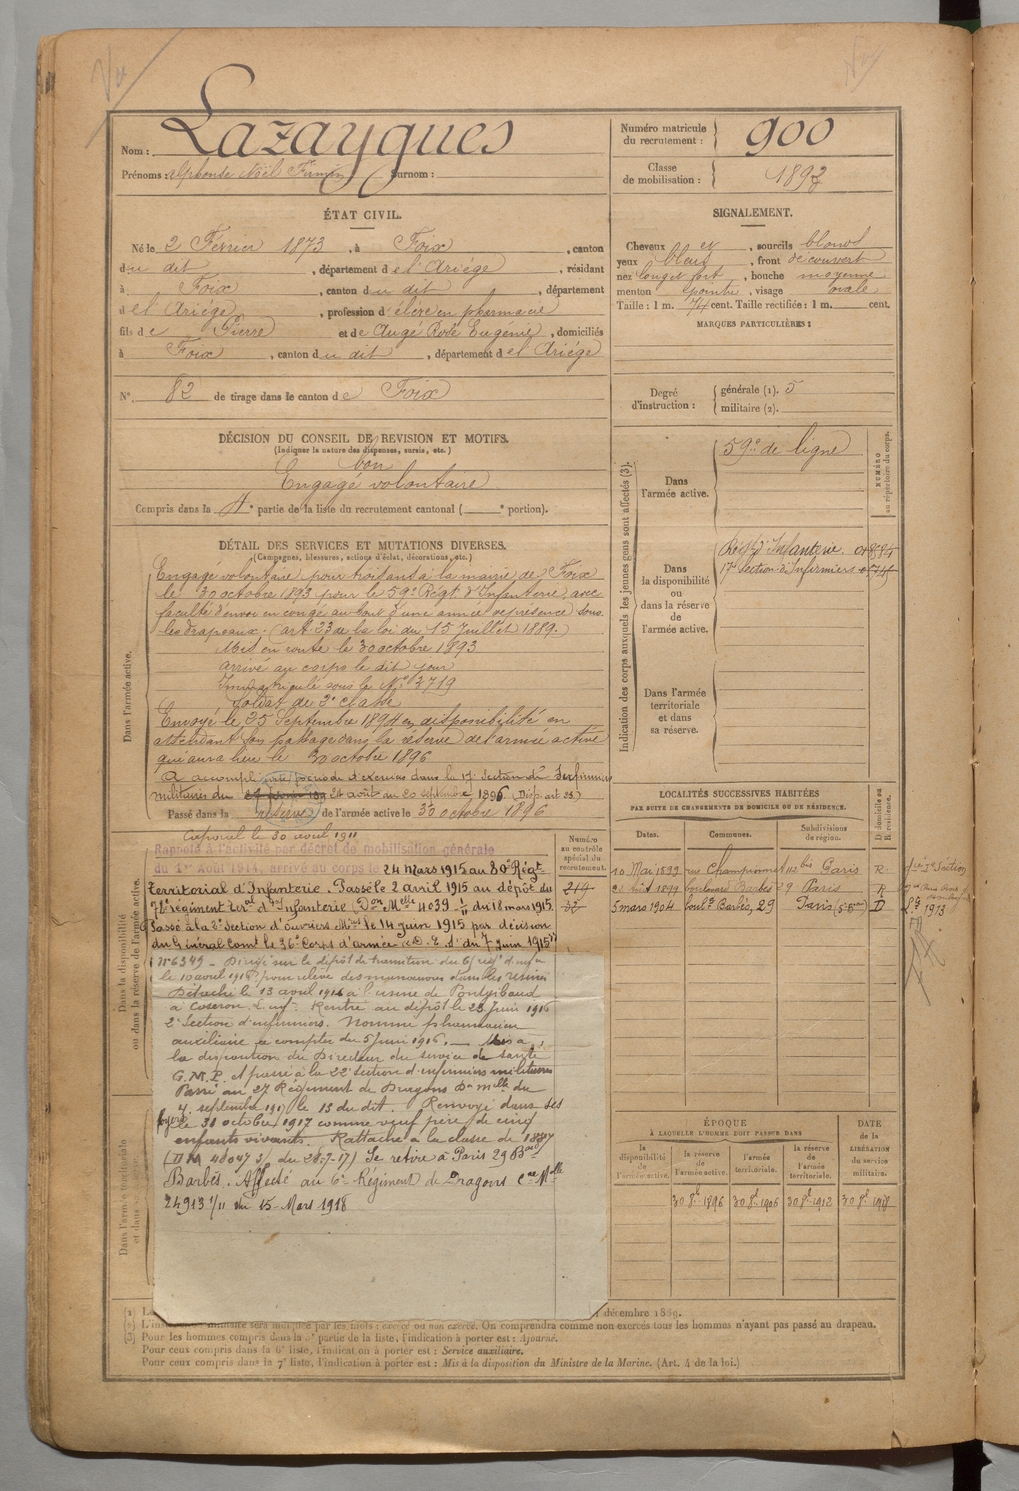 Nom : Lazaygues
Prénoms : Alphonse Noël Firmin Surnom :
Numéro matricule du recrutement : 900
Classe de mobilisation : 1892
ÉTAT CIVIL.
Né le 2 Février 1873, à Foix, canton
du dit, département de l'Ariége, résidant
à Foix, canton du dit, département
de l'Ariége, profession d'élève en pharmacie
fils de Pierre et de Augé Rose Eugénie, domiciliés
à Foix, canton du dit, département de l'Ariége
N° 82 de tirage dans le canton de Foix
SIGNALEMENT.
Cheveux et, sourcils blonds
yeux bleus, front découvert
nez long et fort, bouche moyenne
menton pointu, visage ovale
Taille : 1 m. 74 cent. Taille rectifiée : 1 m. cent.
MARQUES PARTICULIÈRES :
Degré d'instruction : générale (1). 5
militaire (2).
DÉCISION DU CONSEIL DE REVISION ET MOTIFS.
(Indiquer la nature des dispenses, sursis, etc.)
bon
Engagé volontaire
Compris dans la 4e partie de la liste du recrutement cantonal ( e portion).
DÉTAIL DES SERVICES ET MUTATIONS DIVERSES.
(Campagnes, blessures, actions d'éclat, décorations, etc.)
Dans l'armée active.
Engagé volontaire pour trois ans à la mairie de Foix
le 30 octobre 1893 pour le 59e Régt d'Infanterie, avec
faculté d'envoi en congé au bout d'une année de présence sous
les drapeaux. (art. 23 de la loi du 15 Juillet 1889.)
Mis en route le 30 octobre 1893
arrivé au corps le dit jour
Immatriculé sous le N° 3719
Soldat de 2e classe
Envoyé le 25 Septembre 1894 en disponibilité en
attendant son passage dans la réserve de l'armée active
qui aura lieu le 30 octobre 1896
A accompli une période d'exercices dans la 17e Section d'Infirmiers
militaires du 24 août au 20 septembre 1896 (Disp. art 23)
Passé dans la réserve de l'armée active le 30 octobre 1896
Indication des corps auxquels les jeunes gens sont affectés (3).
Dans l'armée active.
59e de ligne
NUMÉRO au répertoire du corps.
Dans la disponibilité ou dans la réserve de l'armée active.
Régt d'Infanterie
17e Section d'Infirmiers
Dans l'armée territoriale et dans sa réserve.
LOCALITÉS SUCCESSIVES HABITÉES
PAR SUITE DE CHANGEMENTS DE DOMICILE OU DE RÉSIDENCE.
Dates. Communes. Subdivisions de région. D domicile ou R résidence.
10 Mai 1899 rue Championnet bis Paris R
boulevard Barbès 29 Paris R
5 mars 1904 boul.d Barbès, 29 Paris D
1913
Dans la disponibilité ou dans la réserve de l'armée active.
Numéro au contrôle spécial du recrutement.
Caporal le 30 avril 1911
Rappelé à l'activité par décret de mobilisation générale
du 1er Août 1914, arrivé au corps le 24 mars 1915 au 80e Régt
Territorial d'Infanterie. Passé le 2 avril 1915 au dépôt du
régiment Teral d'Infanterie (Don Melle 4039 1/11 du 18 mars 1915
Passé à la 2e Section d'ouvriers le 14 juin 1915 par décision
du Général Comt le 16e Corps d'armée du 7 Juin 1915
N° 6349 - Dirigé sur le dépôt de transition du
le 10 avril 1916 pour relève des manœuvres dans les usines
Détaché le 13 avril 1916 à l'usine de Pontgibaud
à Couëron L. inf. Rentré au dépôt le 23 juin 1916
2e Section d'infirmiers. Nommé pharmacien
auxiliaire à compter du 5 Juin 1916. Mis à
la disposition du Directeur du service de santé
G.M.P. et passé à la 22e section d'infirmiers militaires
Passé au 27 Régiment de Dragons Dn melle du
4 septembre 1917 le 13 du dit. Renvoyé dans ses
foyers le 31 octobre 1917 comme veuf père de cinq
enfants vivants. Rattaché à la classe de 1887
(DM 48047 3/ du 28-7-17) Se retire à Paris 29 Bard
Barbès. Affecté au 6e Régiment de Dragons Melle
24913 1/11 du 15 Mars 1918
Dans l'armée territoriale
ÉPOQUE À LAQUELLE L'HOMME DOIT PASSER DANS
la disponibilité de l'armée active. la réserve de l'armée active. l'armée territoriale. la réserve de l'armée territoriale. DATE de la LIBÉRATION du service militaire.
30 8bre 1896 30 8bre 1906 30 8bre 1912 30 8bre 1918
décembre 1889.
militaire sera indiquée par les mots : exercé ou non exercé. On comprendra comme non exercés tous les hommes n'ayant pas passé au drapeau.
(3) Pour les hommes compris dans la partie de la liste, l'indication à porter est : Ajourné.
Pour ceux compris dans la 6e liste, l'indication à porter est : Service auxiliaire.
Pour ceux compris dans la 7e liste, l'indication à porter est : Mis à la disposition du Ministre de la Marine. (Art. 4 de la loi.)